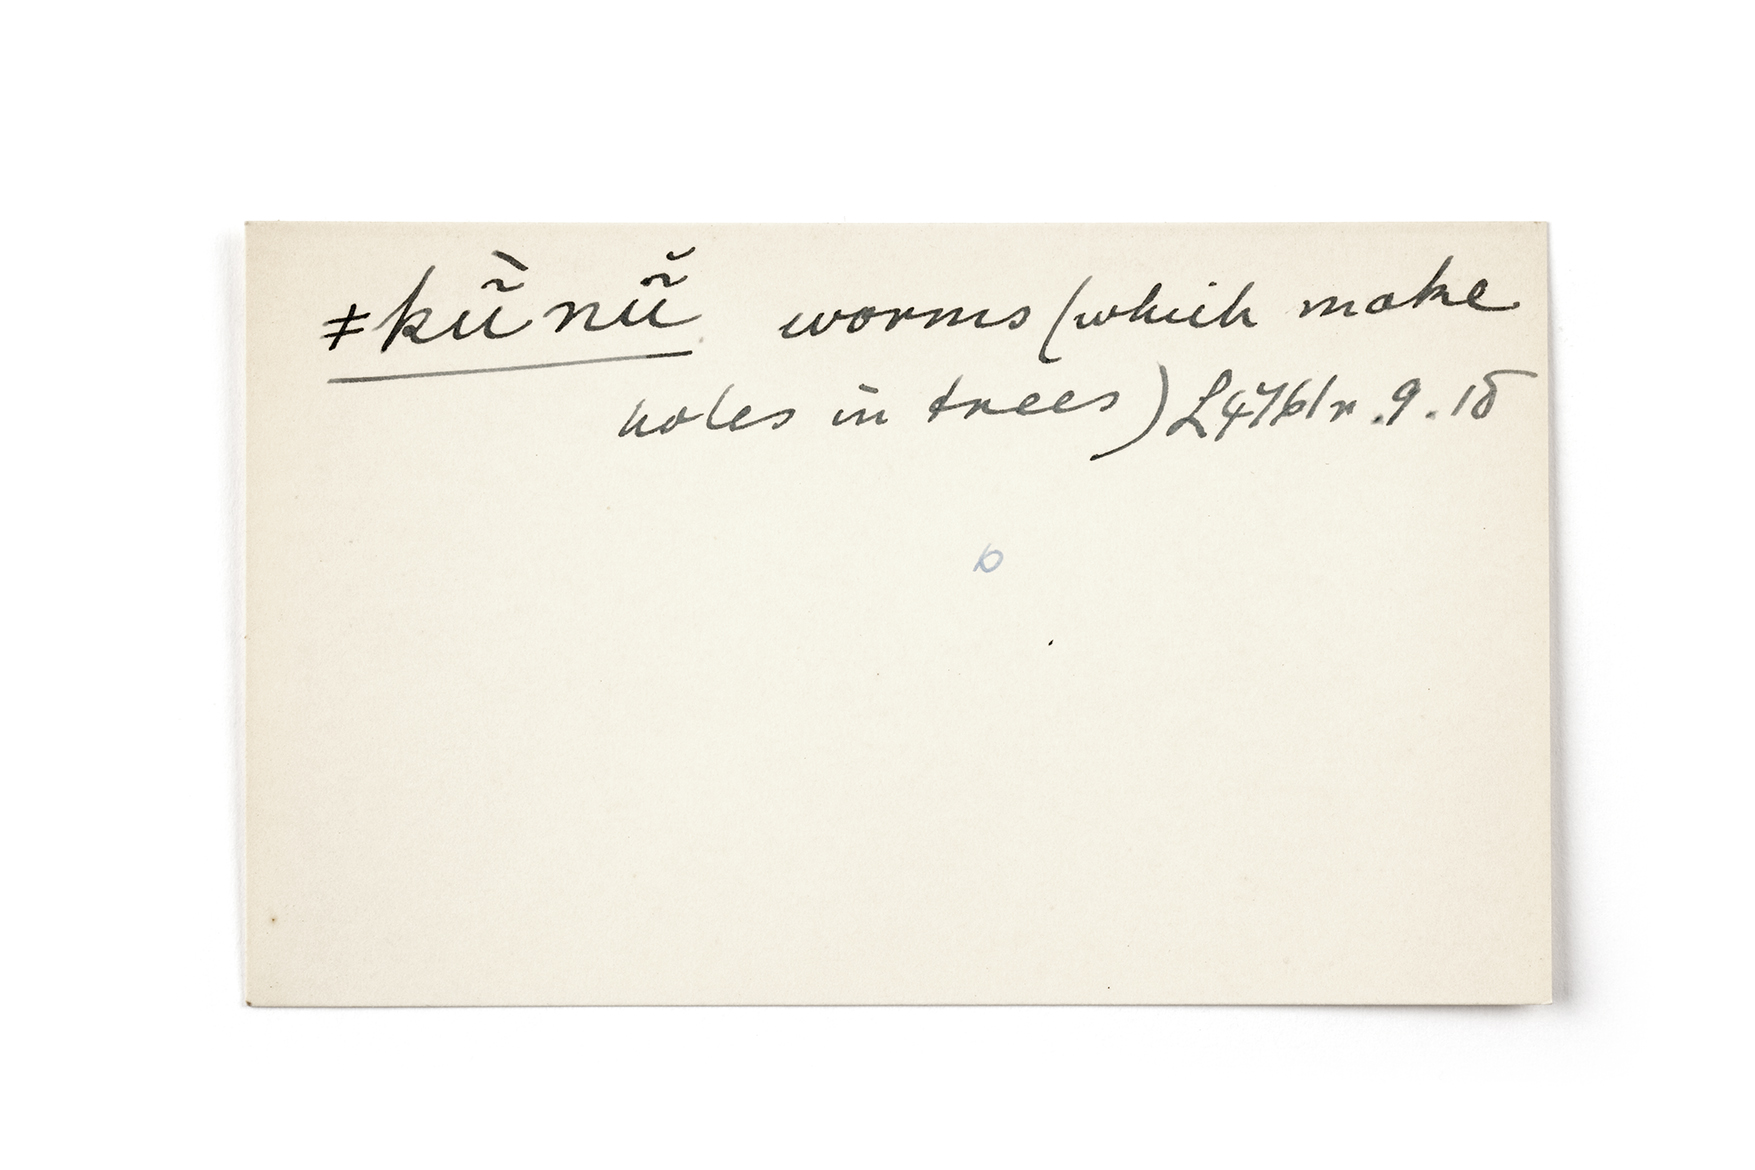 ǂkũ̀ nũ̆ worms (which make
holes in trees) L4761r.9.15
b